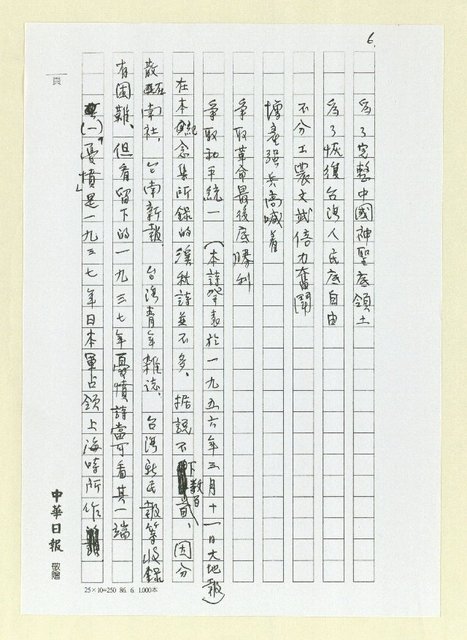 6.
為了完整中國神聖底領土
為了恢復台灣人民底自由
不分工農文武倍力奮鬪
增產強兵高喊着
爭取革命最後底勝利
爭取和平統一（本詩發表於一九五六年三月十一日大地報）
在本紀念集所錄的漢秋詩並不多，据說不下數百首，因分
散在南社，台南新報，台灣青年雜誌，台灣新民報等收錄
有困難，但看留下的一九三七年憂憤詩當可看其一端
(一)「憂憤」是一九三七年日本軍占領上海時所作
頁
中華日報 敬贈
25×10=250 86. 6. 1,000本